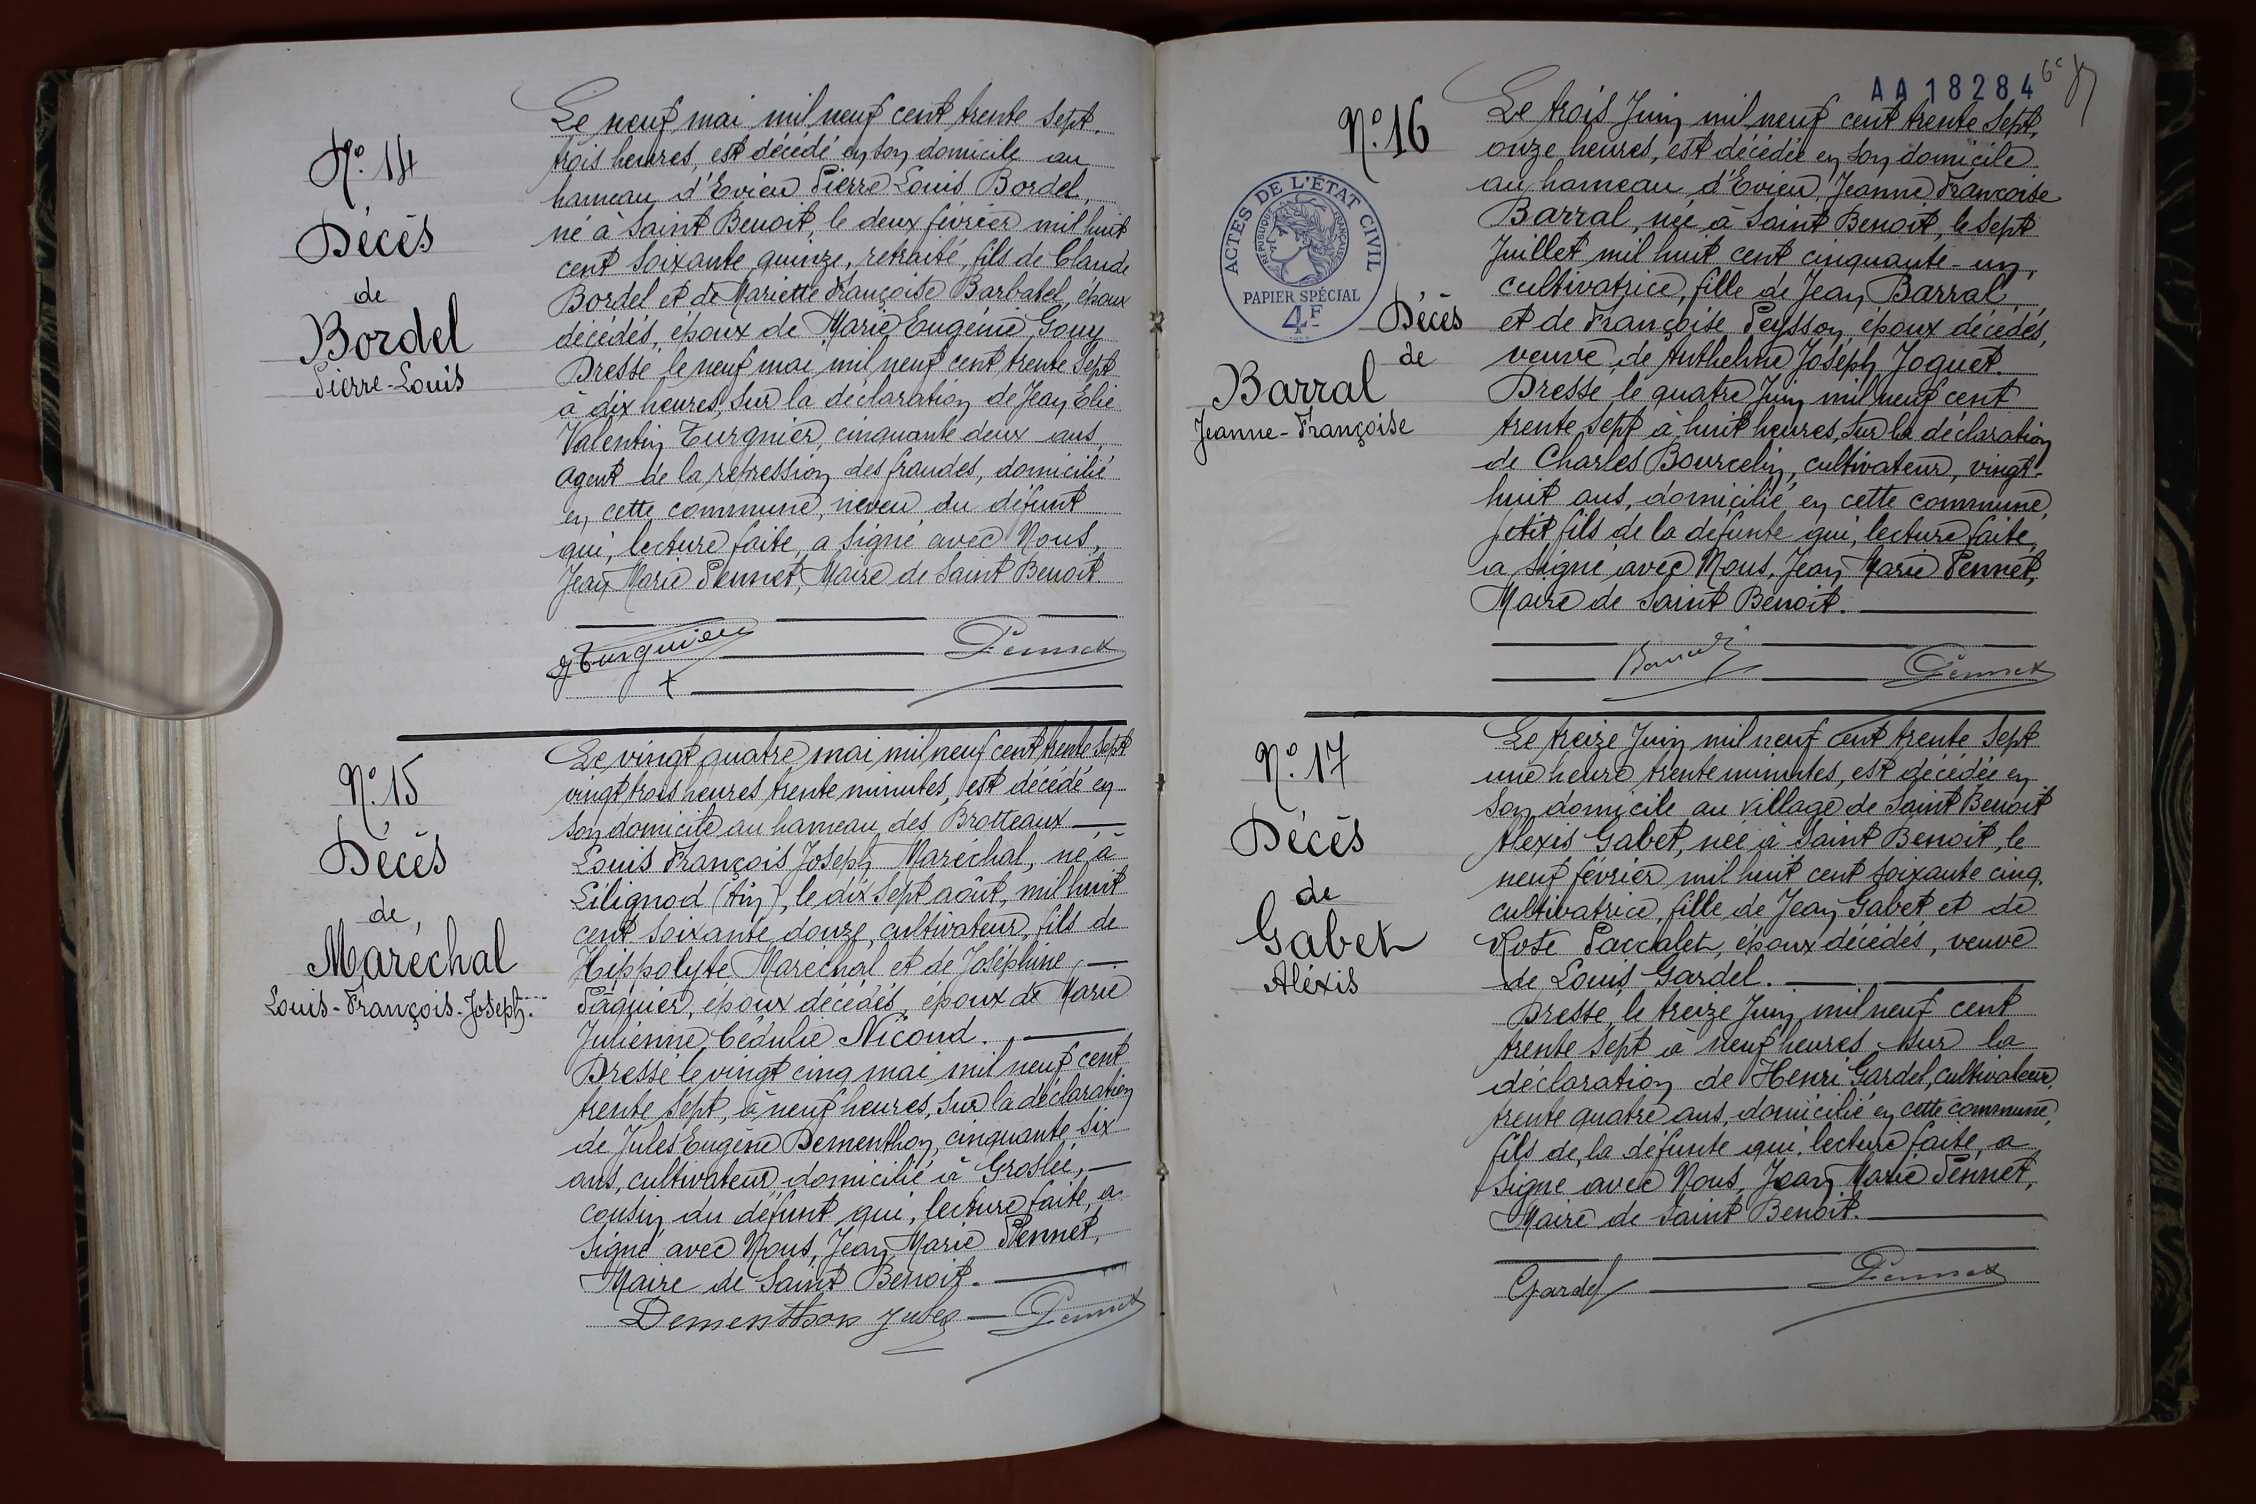 N° 14
Décès
de
Bordel
Pierre-Louis
Le neuf mai mil neuf cent trente sept,
trois heures, est décédé en son domicile au
hameau d'Evieu Pierre Louis Bordel,
né à Saint Benoit, le deux février mil huit
cent soixante quinze, retraité, fils de Claude
Bordel et de Mariette Françoise Barbatel, époux
décédés, époux de Marie Eugénie Gouy
Dressé le neuf mai mil neuf cent trente sept
à dix heures, sur la déclaration de Jean Elie
Valentin Turgnier, cinquante deux ans,
agent de la répression des fraudes, domicilié
en cette commune, neveu du défunt
qui, lecture faite, a signé avec Nous,
Jean Marie Pennet, Maire de Saint Benoit.
Pennet
N° 15
Décès
de
Maréchal
Louis-François-Joseph.
Le vingt quatre mai mil neuf cent trente sept
vingt trois heures trente minutes, est décédé en
son domicile au hameau des Brotteaux
Louis François Joseph Maréchal, né à
Lilignod (Ain), le dix sept août, mil huit
cent soixante douze, cultivateur, fils de
Hippolyte Maréchal et de Joséphine,
Paquier, époux décédés, époux de Marie
Julienne Cédulie Nicoud.
Dressé le vingt cinq mai mil neuf cent
trente sept, à neuf heures, sur la déclaration
de Jules Eugène Dementhon, cinquante six
ans, cultivateur, domicilié à Groslée,
cousin du défunt qui, lecture faite, a
signé avec Nous, Jean Marie Pennet,
Maire de Saint Benoit.
Dementhon Jules Pennet
AA 18284
N° 16
ACTES DE L'ÉTAT CIVIL
RÉPUBLIQUE FRANÇAISE
PAPIER SPÉCIAL
4F
Décès
de
Barral
Jeanne-Françoise
Le trois Juin mil neuf cent trente sept,
onze heures, est décédée en son domicile
au hameau d'Evieu, Jeanne Françoise
Barral, née à Saint Benoit, le sept
Juillet mil huit cent cinquante-un,
cultivatrice, fille de Jean Barral,
et de Françoise Peysson, époux décédés,
veuve de Anthelme Joseph Joguet.
Dressé le quatre Juin mil neuf cent
trente sept à huit heures, sur la déclaration
de Charles Bourcelin, cultivateur, vingt-
huit ans, domicilié en cette commune,
petit fils de la défunte qui, lecture faite,
a signé avec Nous, Jean Marie Pennet,
Maire de Saint Benoit.
Pennet
N° 17
Décès
de
Gabet
Aléxis
Le treize Juin mil neuf cent trente sept
une heure trente minutes, est décédée en
son domicile au village de Saint Benoit
Alexis Gabet, née à Saint Benoit, le
neuf février mil huit cent soixante cinq,
cultivatrice, fille de Jean Gabet et de
Rose Paccalet, époux décédés, veuve
de Louis Gardel.
Dressé, le treize Juin mil neuf cent
trente sept à neuf heures, sur la
déclaration de Henri Gardel, cultivateur,
trente quatre ans, domicilié en cette commune,
fils de la défunte qui, lecture faite, a
signé avec Nous, Jean Marie Pennet,
Maire de Saint Benoit.
Gardel Pennet